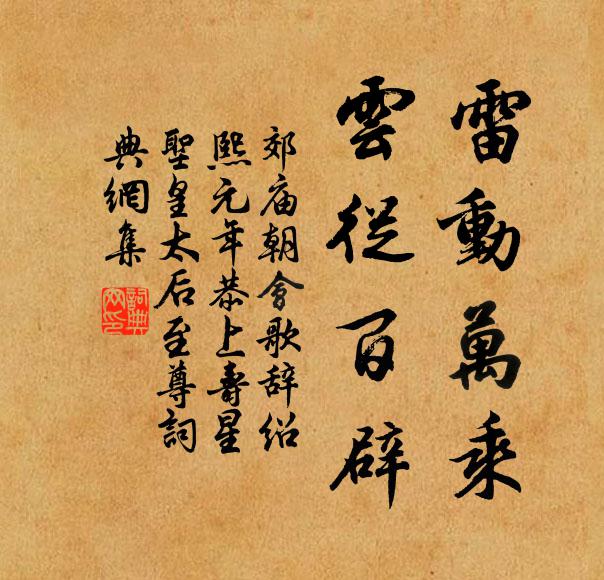 雷動萬乘
雲從百辟
郊庙朝會歌辞绍
熙元年恭上壽星
聖皇太后至尊詞
典網集
詞典
网印